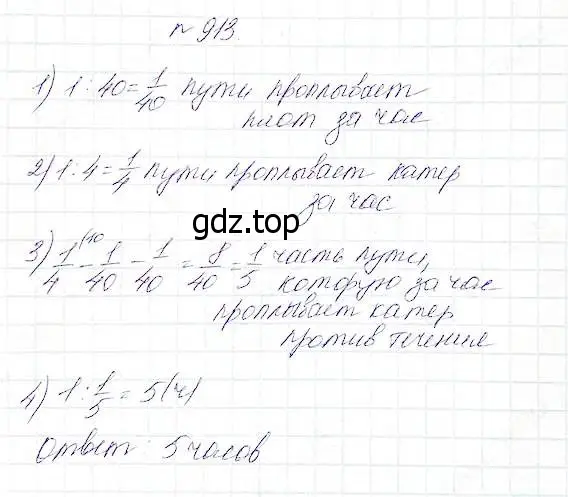 № 913.
1) 1 : 40 = 1/40 пути проплывает
плот за час
2) 1 : 4 = 1/4 пути проплывает катер
за час
gdz.top
3) 1/4 (10 - 1/40 - 1/40 = 8/40 = 1/5 часть пути,
которую за час
проплывает катер
против течения
4) 1 : 1/5 = 5 (ч)
Ответ: 5 часов